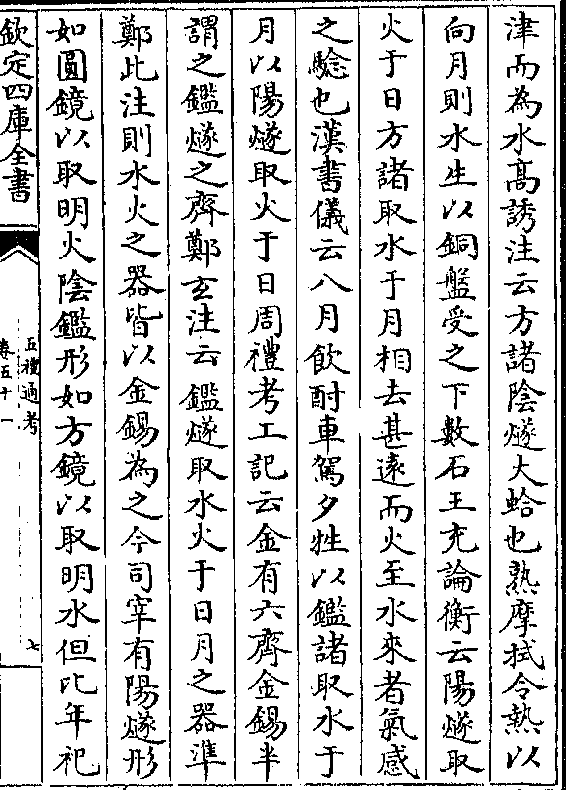 津而為水高誘注云方諸陰燧大蛤也熟摩拭令熱以
向月則水生以銅盤受之下數石王充論衡云陽燧取
火于日方諸取水于月相去甚遠而火至水來者氣感
之驗也漢書儀云八月飲酎車駕夕牲以鑑諸取水于
月以陽燧取火于日周禮考工記云金有六齊金錫半
謂之鑑燧之齊鄭玄注云鑑燧取水火于日月之器準
鄭此注則水火之器皆以金錫為之今司宰有陽燧形
如圓鏡以取明火陰鑑形如方鏡以取明水但比年祀
欽定四庫全書
五禮通考
卷五十一
七